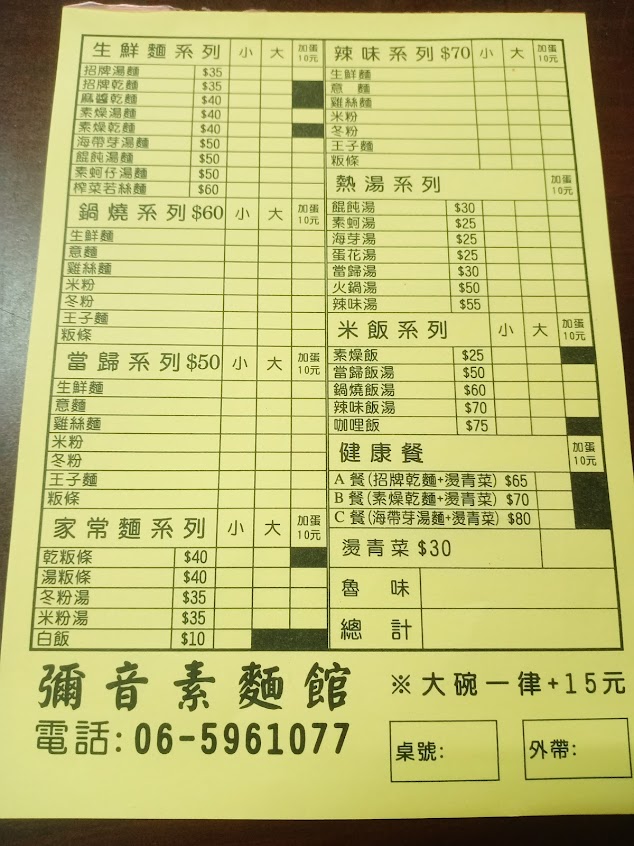 生鮮麵系列 小 大 加蛋10元
招牌湯麵 $35
招牌乾麵 $35
麻醬乾麵 $40
素燥湯麵 $40
素燥乾麵 $40
海帶芽湯麵 $50
餛飩湯麵 $50
素蚵仔湯麵 $50
榨菜若絲麵 $60
鍋燒系列$60 小 大 加蛋10元
生鮮麵
意麵
雞絲麵
米粉
冬粉
王子麵
粄條
當歸系列$50 小 大 加蛋10元
生鮮麵
意麵
雞絲麵
米粉
冬粉
王子麵
粄條
家常麵系列 小 大 加蛋10元
乾粄條 $40
湯粄條 $40
冬粉湯 $35
米粉湯 $35
白飯 $10
辣味系列$70 小 大 加蛋10元
生鮮麵
意 麵
雞絲麵
米粉
冬粉
王子麵
粄條
熱湯系列 加蛋10元
餛飩湯 $30
素蚵湯 $25
海芽湯 $25
蛋花湯 $25
當歸湯 $30
火鍋湯 $50
辣味湯 $55
米飯系列 小 大 加蛋10元
素燥飯 $25
當歸飯湯 $50
鍋燒飯湯 $60
辣味飯湯 $70
咖哩飯 $75
健康餐 加蛋10元
A 餐(招牌乾麵+燙青菜) $65
B 餐(素燥乾麵+燙青菜) $70
C 餐(海帶芽湯麵+燙青菜) $80
燙青菜$30
魯 味
總 計
彌音素麵館
電話:06-5961077
※大碗一律+15元
桌號:
外帶: